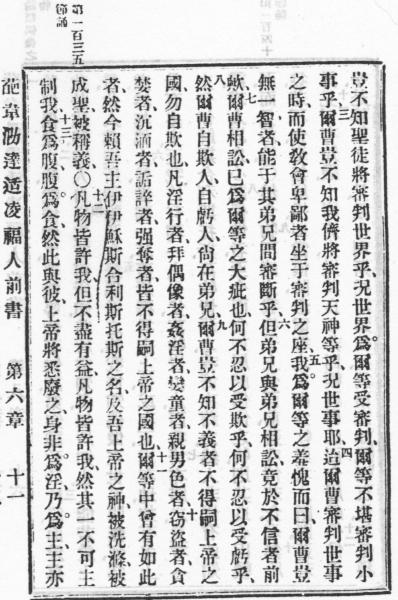 第一百三五
節誦
豈不知聖徒將審判世界乎、况世界爲爾等受審判、爾等不堪審判小
事乎、三爾曹豈不知我儕將審判天神等乎、况世事耶、四迨爾曹審判世事
之時、而使教會卑鄙者坐于審判之座、五我爲爾等之羞愧而曰、爾曹豈
無一智者、能于其弟兄間審斷乎、六但弟兄與弟兄相訟、竟於不信者前
歟、七爾曹相訟、已爲爾等之大疵也、何不忍以受欺乎、何不忍以受虧乎、
八然爾曹自欺人、自虧人、尚在弟兄、九爾曹豈不知不義者不得嗣上帝之
國、勿自欺也、凡淫行者、拜偶像者、姦淫者、孌童者、親男色者、十竊盜者、貪
婪者、沉湎者、詬誶者、强奪者、皆不得嗣上帝之國也、十一爾等中曾有如此
者、然今賴吾主伊伊穌斯合利斯托斯之名、及吾上帝之神、被洗滌、被
成聖、被稱義、〇十二凡物皆許我、但不盡有益、凡物皆許我、然其一不可主
制我、十三食爲腹、腹爲食、然此與彼、上帝將悉廢之、身非爲淫、乃爲主、主亦
葩韋泐達适凌福人前書 第六章 十一